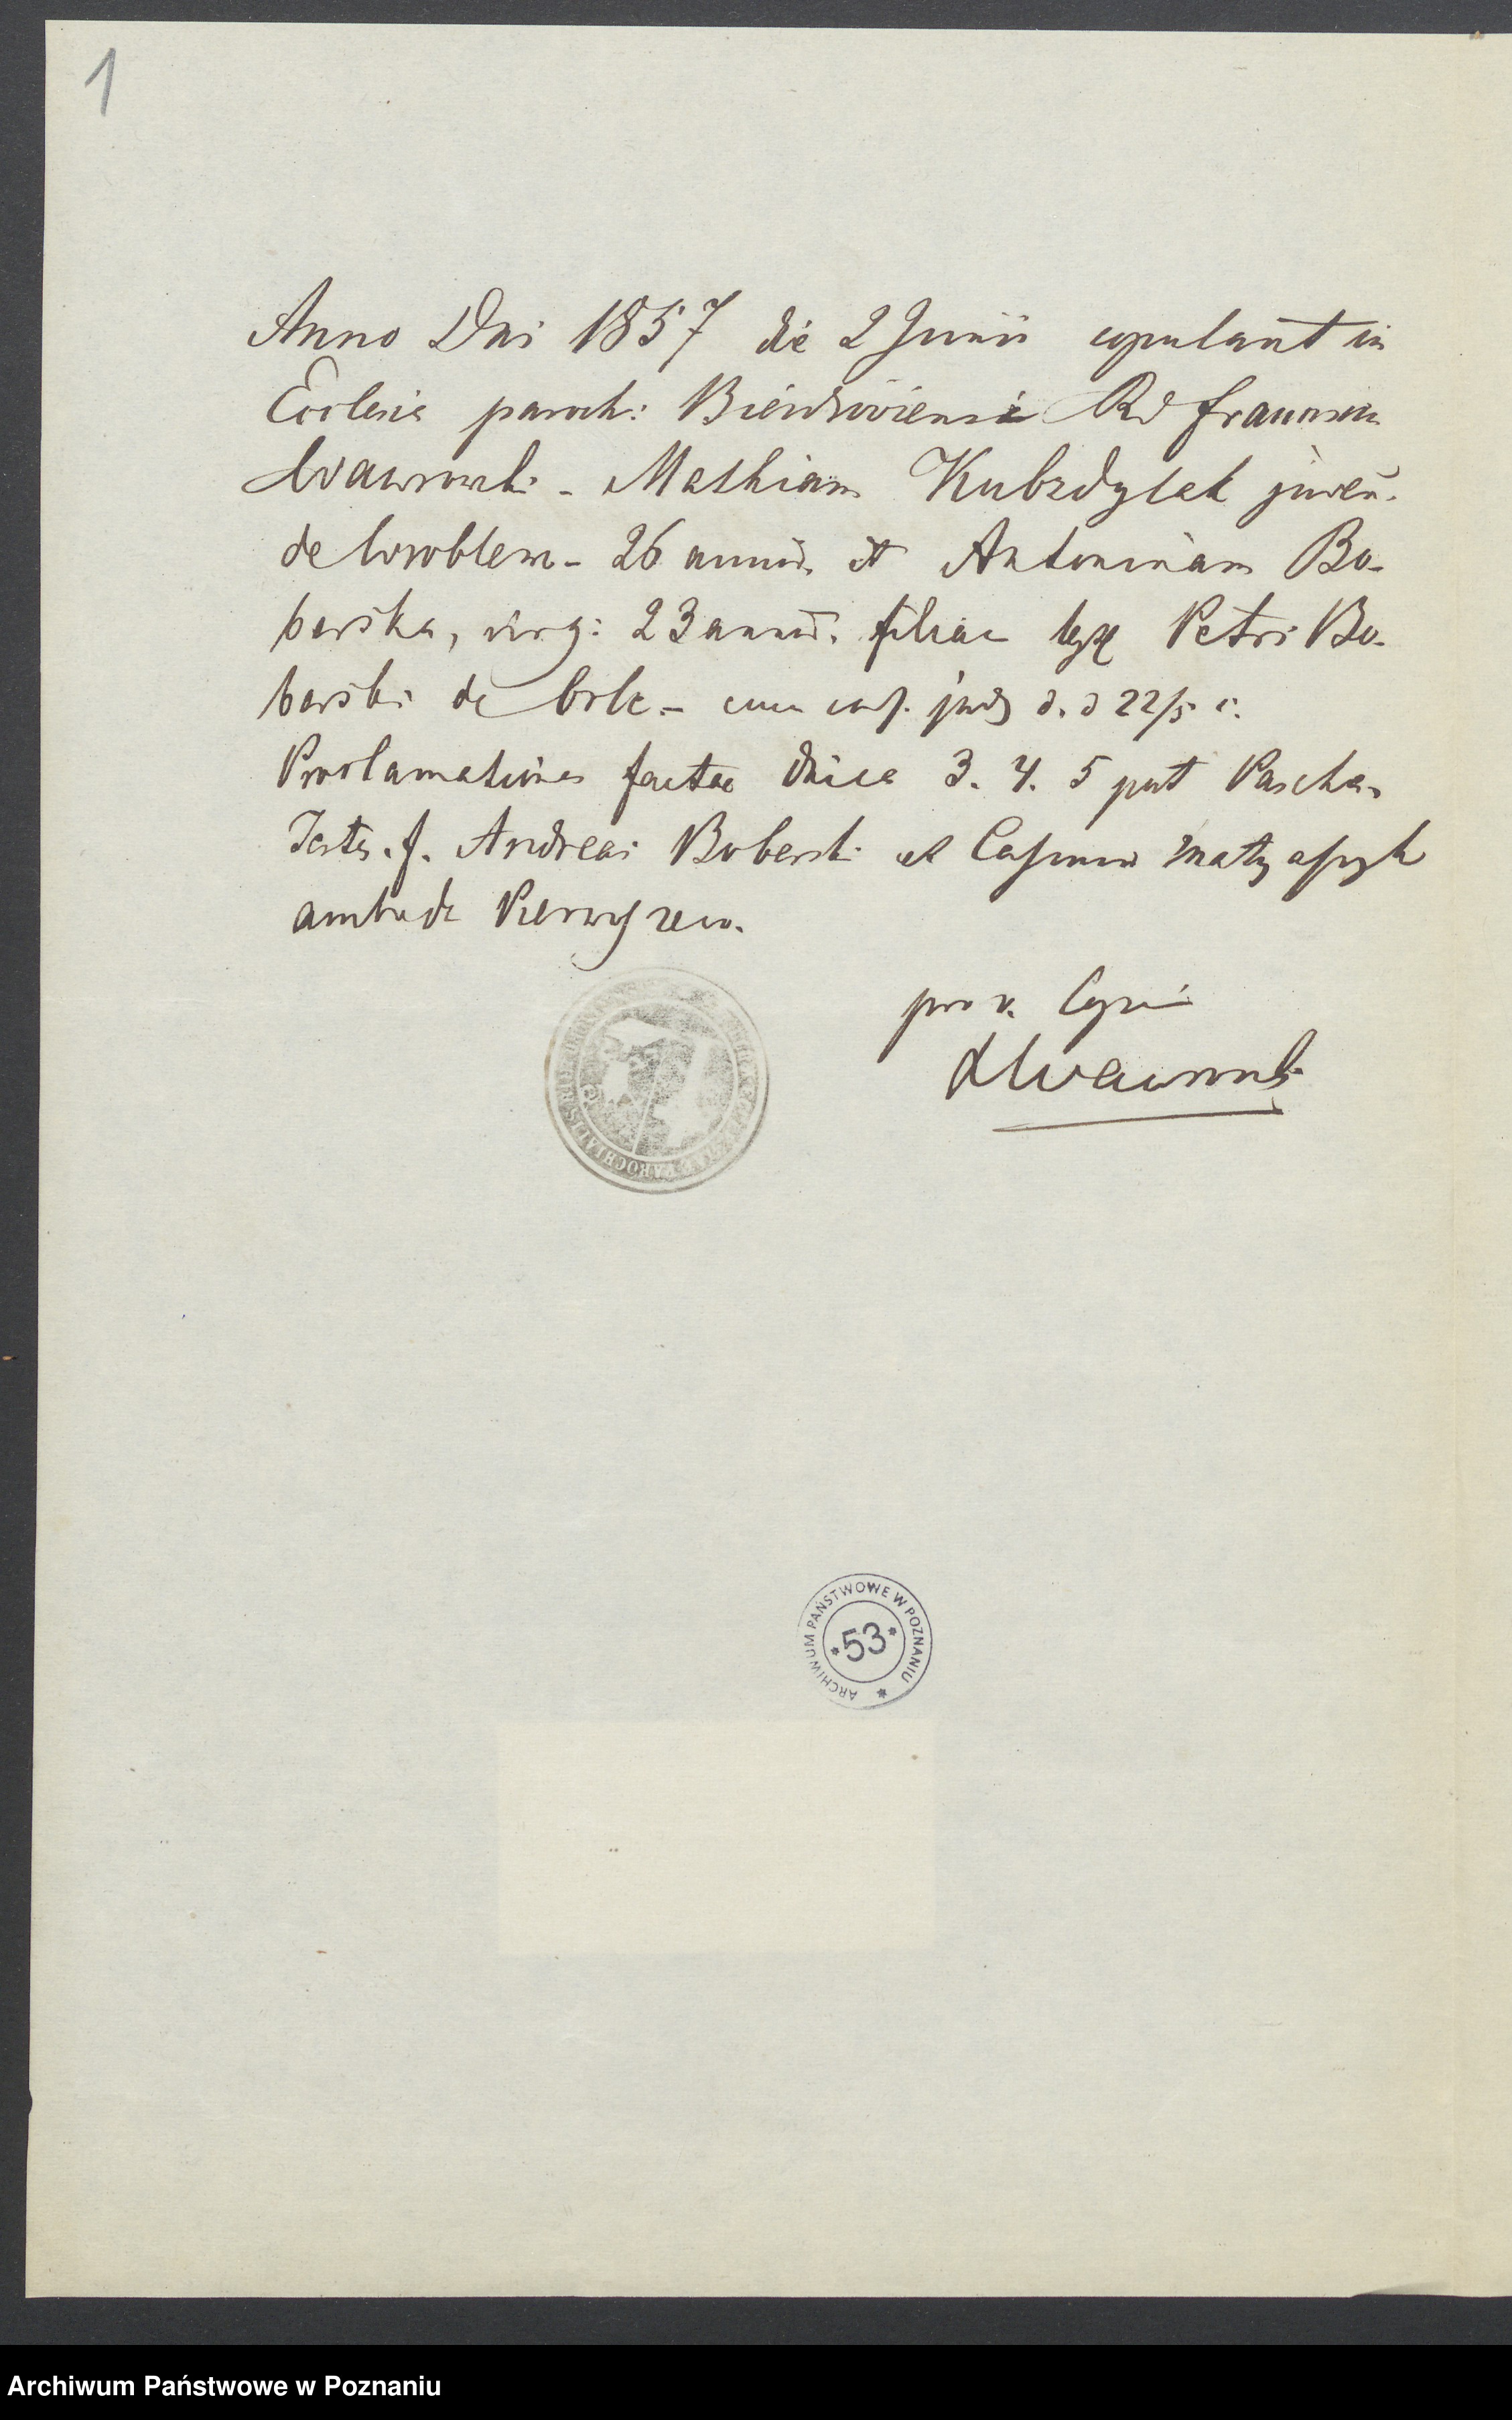 1
Anno Dni 1857 die 2 Junii copulavit in
Ecclesia paroch: Biezdroviensi Rd Franciscus
Wawrowski - Mathiam Kubzdylak juven.
de Wroblew - 26 annor. et Antoninam Bo-
berska, virg: 23 annor. filiae Petri Bo-
berski de - cum d. d 22/5 c.
Proclamationes factae Dnica 3. 4. 5 post Pascha.
Testes. f. Andreas Boberski et Casimir Matyaszyk
ambo de Pierwoszewo.
pro v. Copia
Wawrowski
PAROCHIALIS
ARCHIWUM PAŃSTWOWE W POZNANIU
*53*
Archiwum Państwowe w Poznaniu